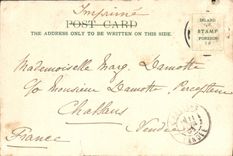 Imprimé
POST CARD
THE ADDRESS ONLY TO BE WRITTEN ON THIS SIDE.
INLAND
½D
STAMP
FOREIGN
1D
Mademoiselle Marg. Damotte
c/o Monsieur Damotte Percepteur
Challans
Vendée
France